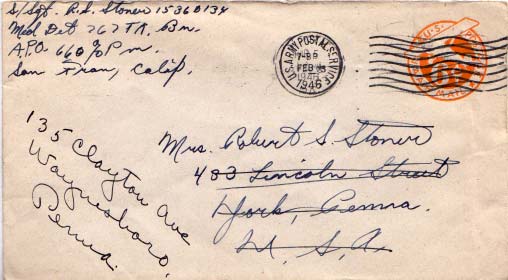 S/Sgt. R.S. Stoner 15360134
Med Det 767 TK. Bn.
A.P.O. 660 % P.m.
San Fran, Calif.
U.S. ARMY POSTAL SERVICE
FEB
1946
Mrs. Robert S. Stoner
433 Lincoln Street
York, Penna.
U. S. A.
135 Clayton Ave
Waynesboro,
Penna.